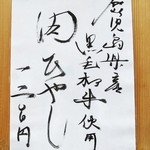 鹿児島県産
黒毛和牛使用
肉ひやし
一三〇〇円